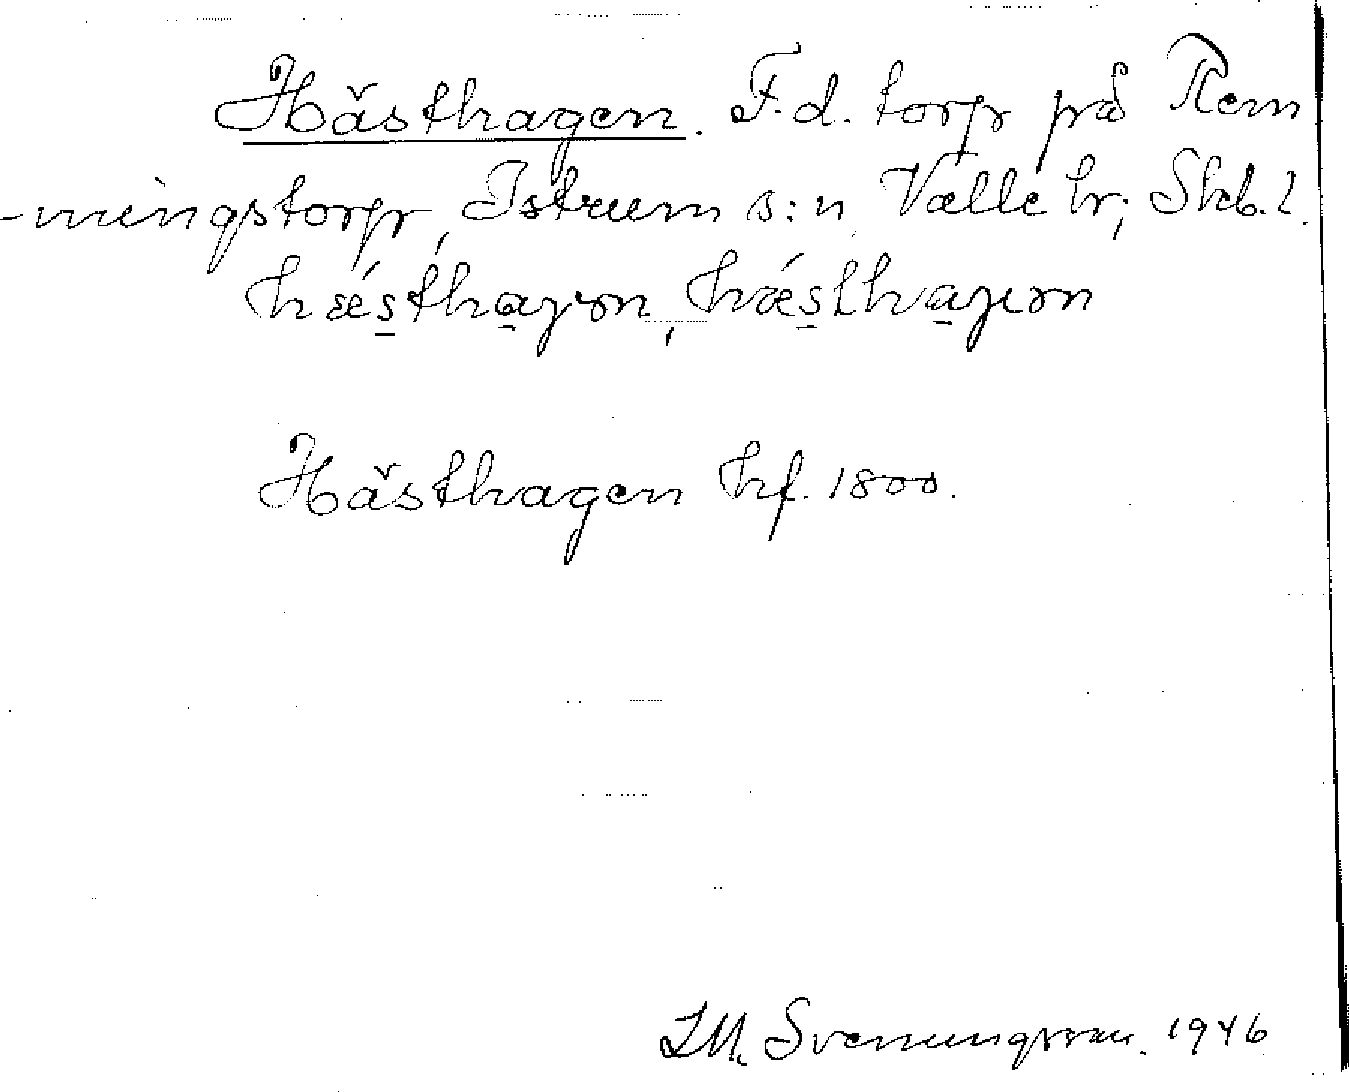 Hästhagen. F.d. torp på Rem
-mingstorp, Istrum s:n Valle hr; Skb.l.
hǽsthaɣən, hǽsthaɣən
Hästhagen hf. 1800.
LM. Svenungsson. 1946